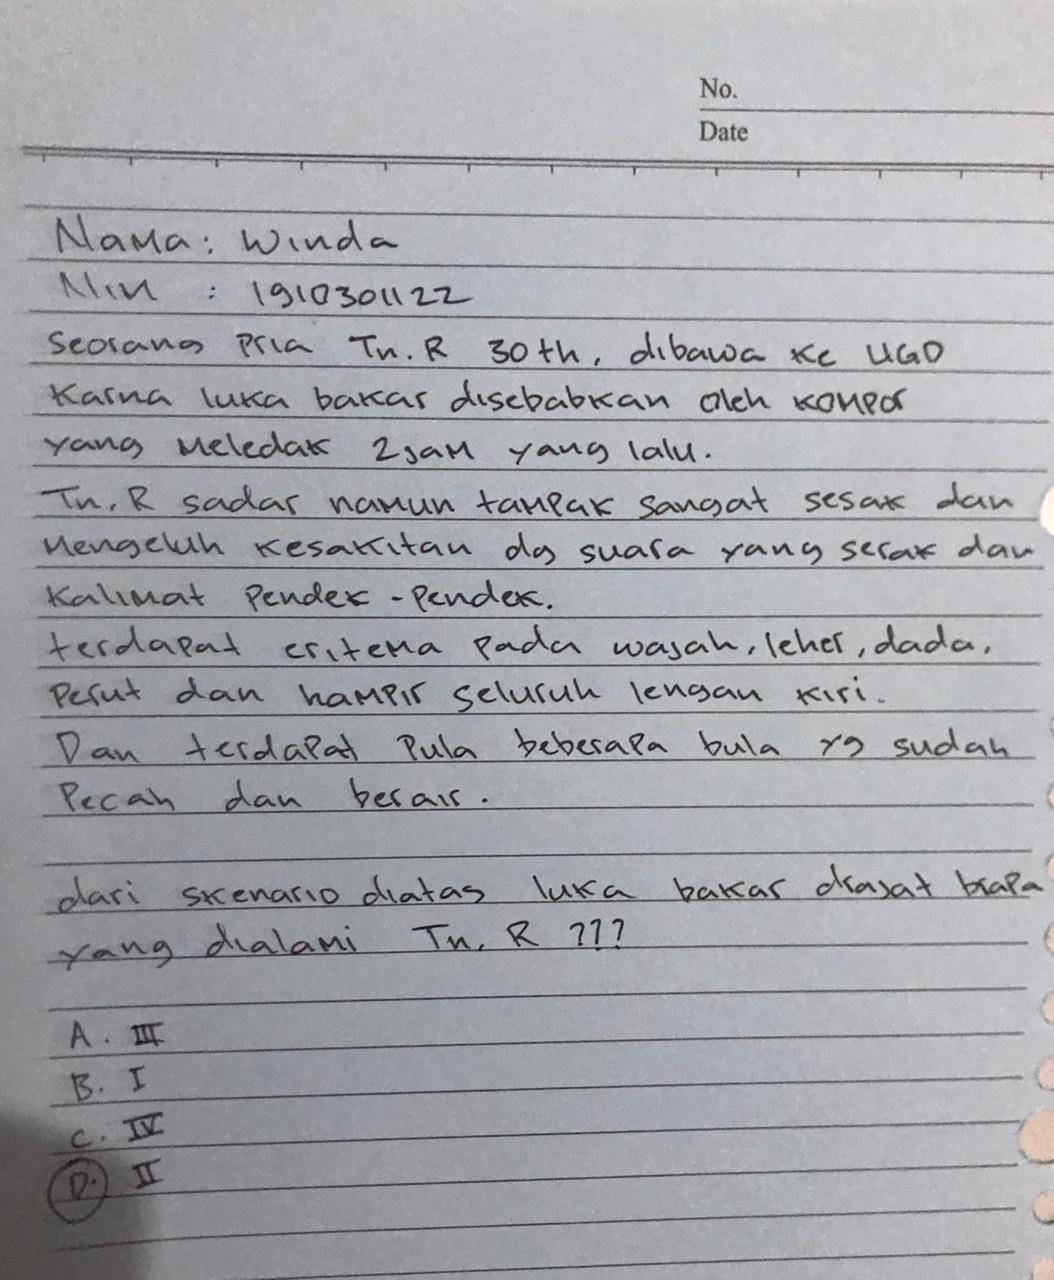 No.
Date
Nama: Winda
Nim : 1910301122
Seorang pria Tn. R 30th, dibawa ke UGD
Karna luka bakar disebabkan oleh kompor
yang meledak 2 jam yang lalu.
Tn. R sadar namun tampak sangat sesak dan
mengeluh kesakitan dg suara yang serak dan
kalimat pendek - pendek.
terdapat eritema pada wajah, leher, dada,
perut dan hampir seluruh lengan kiri.
Dan terdapat pula beberapa bula yg sudah
pecah dan berair.
dari skenario diatas luka bakar drajat brapa
yang dialami Tn. R ???
A. III
B. I
C. IV
D. II